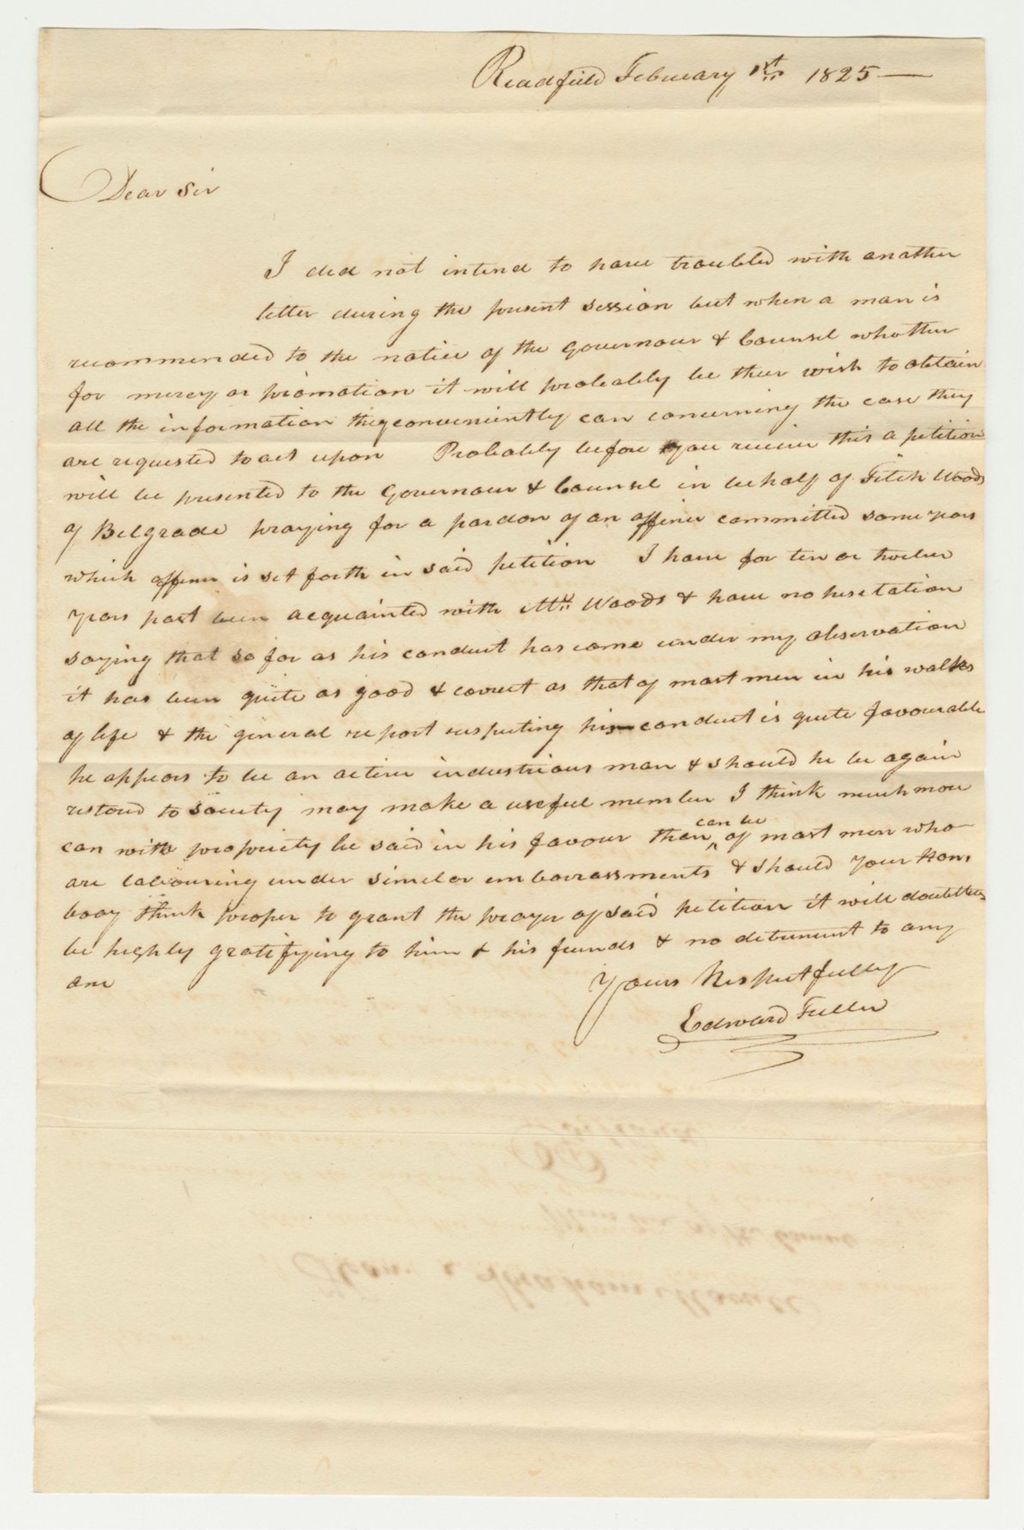 Readfield February 1st 1825
Dear Sir
I did not intend to have troubled with another
letter during the present session but when a man is
recommended to the notice of the Governour & Counsel whether
for mercy or promotion it will probably be their wish to obtain
all the information they conveniently can concerning the case they
are requested to act upon Probably before you receive this a petition
will be presented to the Governour & Counsel in behalf of Fitch Woods
of Belgrade praying for a pardon of an offence committed some years
which offence is set forth in said petition I have for ten or twelve
years past been acquainted with Mr. Woods & have no hesitation
saying that so far as his conduct has come under my observation
it has been quite as good & correct as that of most men in his walks
of life & the general report respecting his conduct is quite favourable
he appears to be an active industrious man & should he be again
restored to Society may make a useful member I think much more
can with propriety be said in his favour than can be of most men who
are labouring under similar embarrassments & should your Hon
body think proper to grant the prayer of said petition it will doubtless
be highly gratifying to him & his friends & no detriment to any
one
Yours Respectfully
Edward Fuller